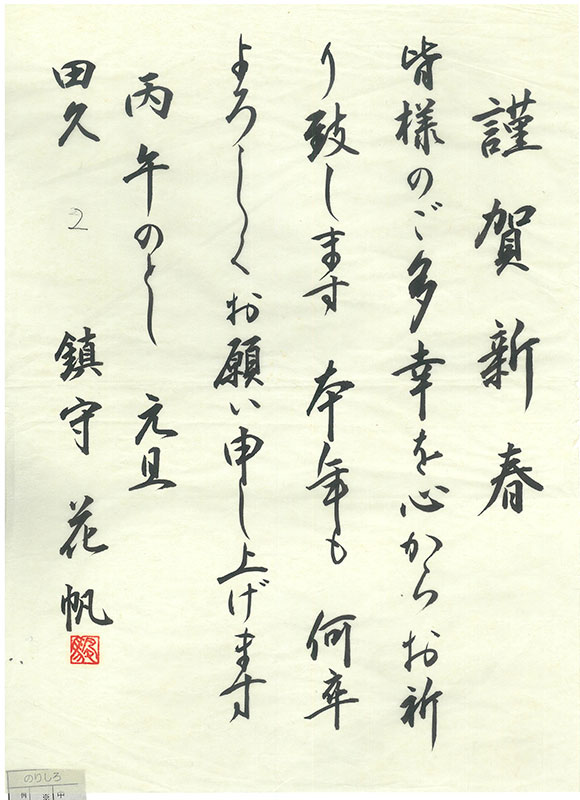 謹賀新春
皆様のご多幸を心からお祈
り致します 本年も 何卒
よろしくお願い申し上げます
丙午のとし 元旦
田久 2 鎮守 花帆
のりしろ